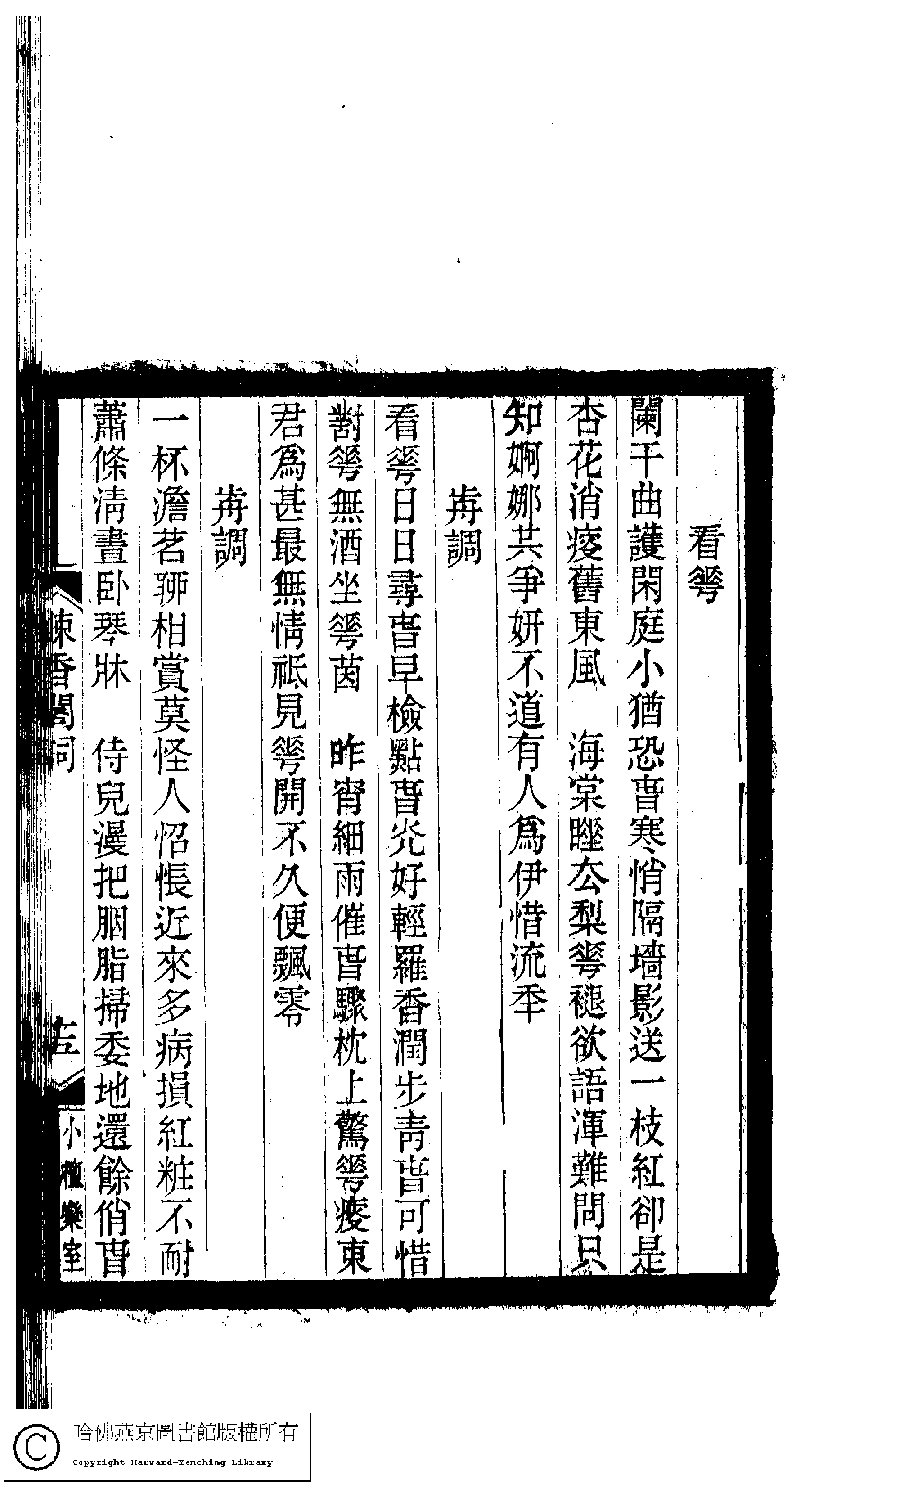 看蕚
闌干曲護閑庭小猶恐旾寒悄隔墻影送一枝紅卻是
杏花消瘦舊東風　海棠睡厺梨蕚褪欲語渾難問只
知婀娜共爭妍不道有人爲伊惜流秊
再調
看蕚日日尋旾早檢點旾光好輕羅香潤步靑旾可惜
對蕚無酒坐蕚茵　昨宵細雨催旾驟枕上驚蕚瘦東
君爲甚最無情祗見蕚開不久便飄零
再調
一杯澹茗聊相賞莫怪人怊悵近來多病損紅粧不耐
蕭條淸晝卧琴牀　侍兒漫把胭脂掃委地還餘俏旾
棟香閣詞
十五
小檀欒室
哈佛燕京圖書館版權所有
Copyright Harvard-Yenching Library